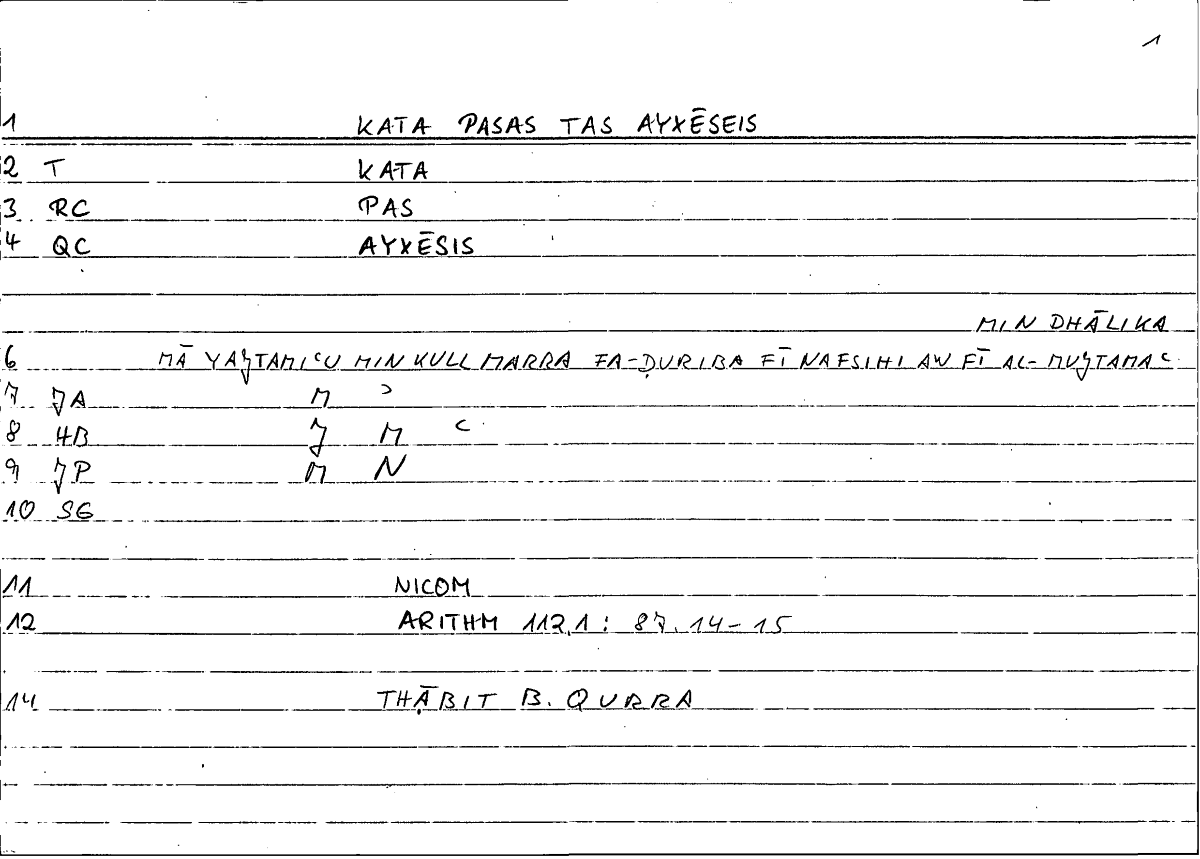 1
1 KATA PASAS TAS AYXĒSEIS
2 T KATA
3 RC PAS
4 QC AYXĒSIS
MIN DHĀLIKA
6 MĀ YAJTAMIʿU MIN KULL MARRA FA-ḌURIBA FĪ NAFSIHI AW FĪ AL-MUJTAMAʿ
7 JA M ʾ
8 HB J M ʿ
9 JP M N
10 SG
11 NICOM
12 ARITHM 112,1 : 87.14-15
14 THĀBIT B. QURRA